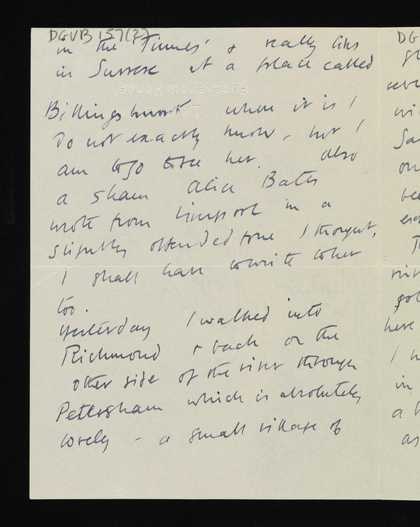 DGVB 157(2)
in the Times' & really lives
in Sussex at a place called
Billingshurst where it is I
do not exactly know, but I
am to go & see her. Also
a sham Alice Bates
wrote from Liverpool in a
slightly offended tone I thought,
I shall have to write to her
too.
Yesterday I walked into
Richmond & back on the
other side of the river through
Petersham which is absolutely
lovely - a small village of
DG